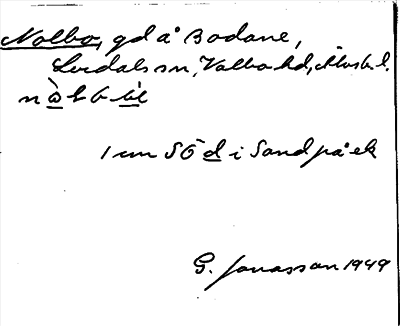 Nolbo, gd å Bodane,
Lerdals sn, Valbo hd, Älvsb. l.
nò l b ɷ
1 cm SÖ d i Sandpåek
G. Jonasson 1949